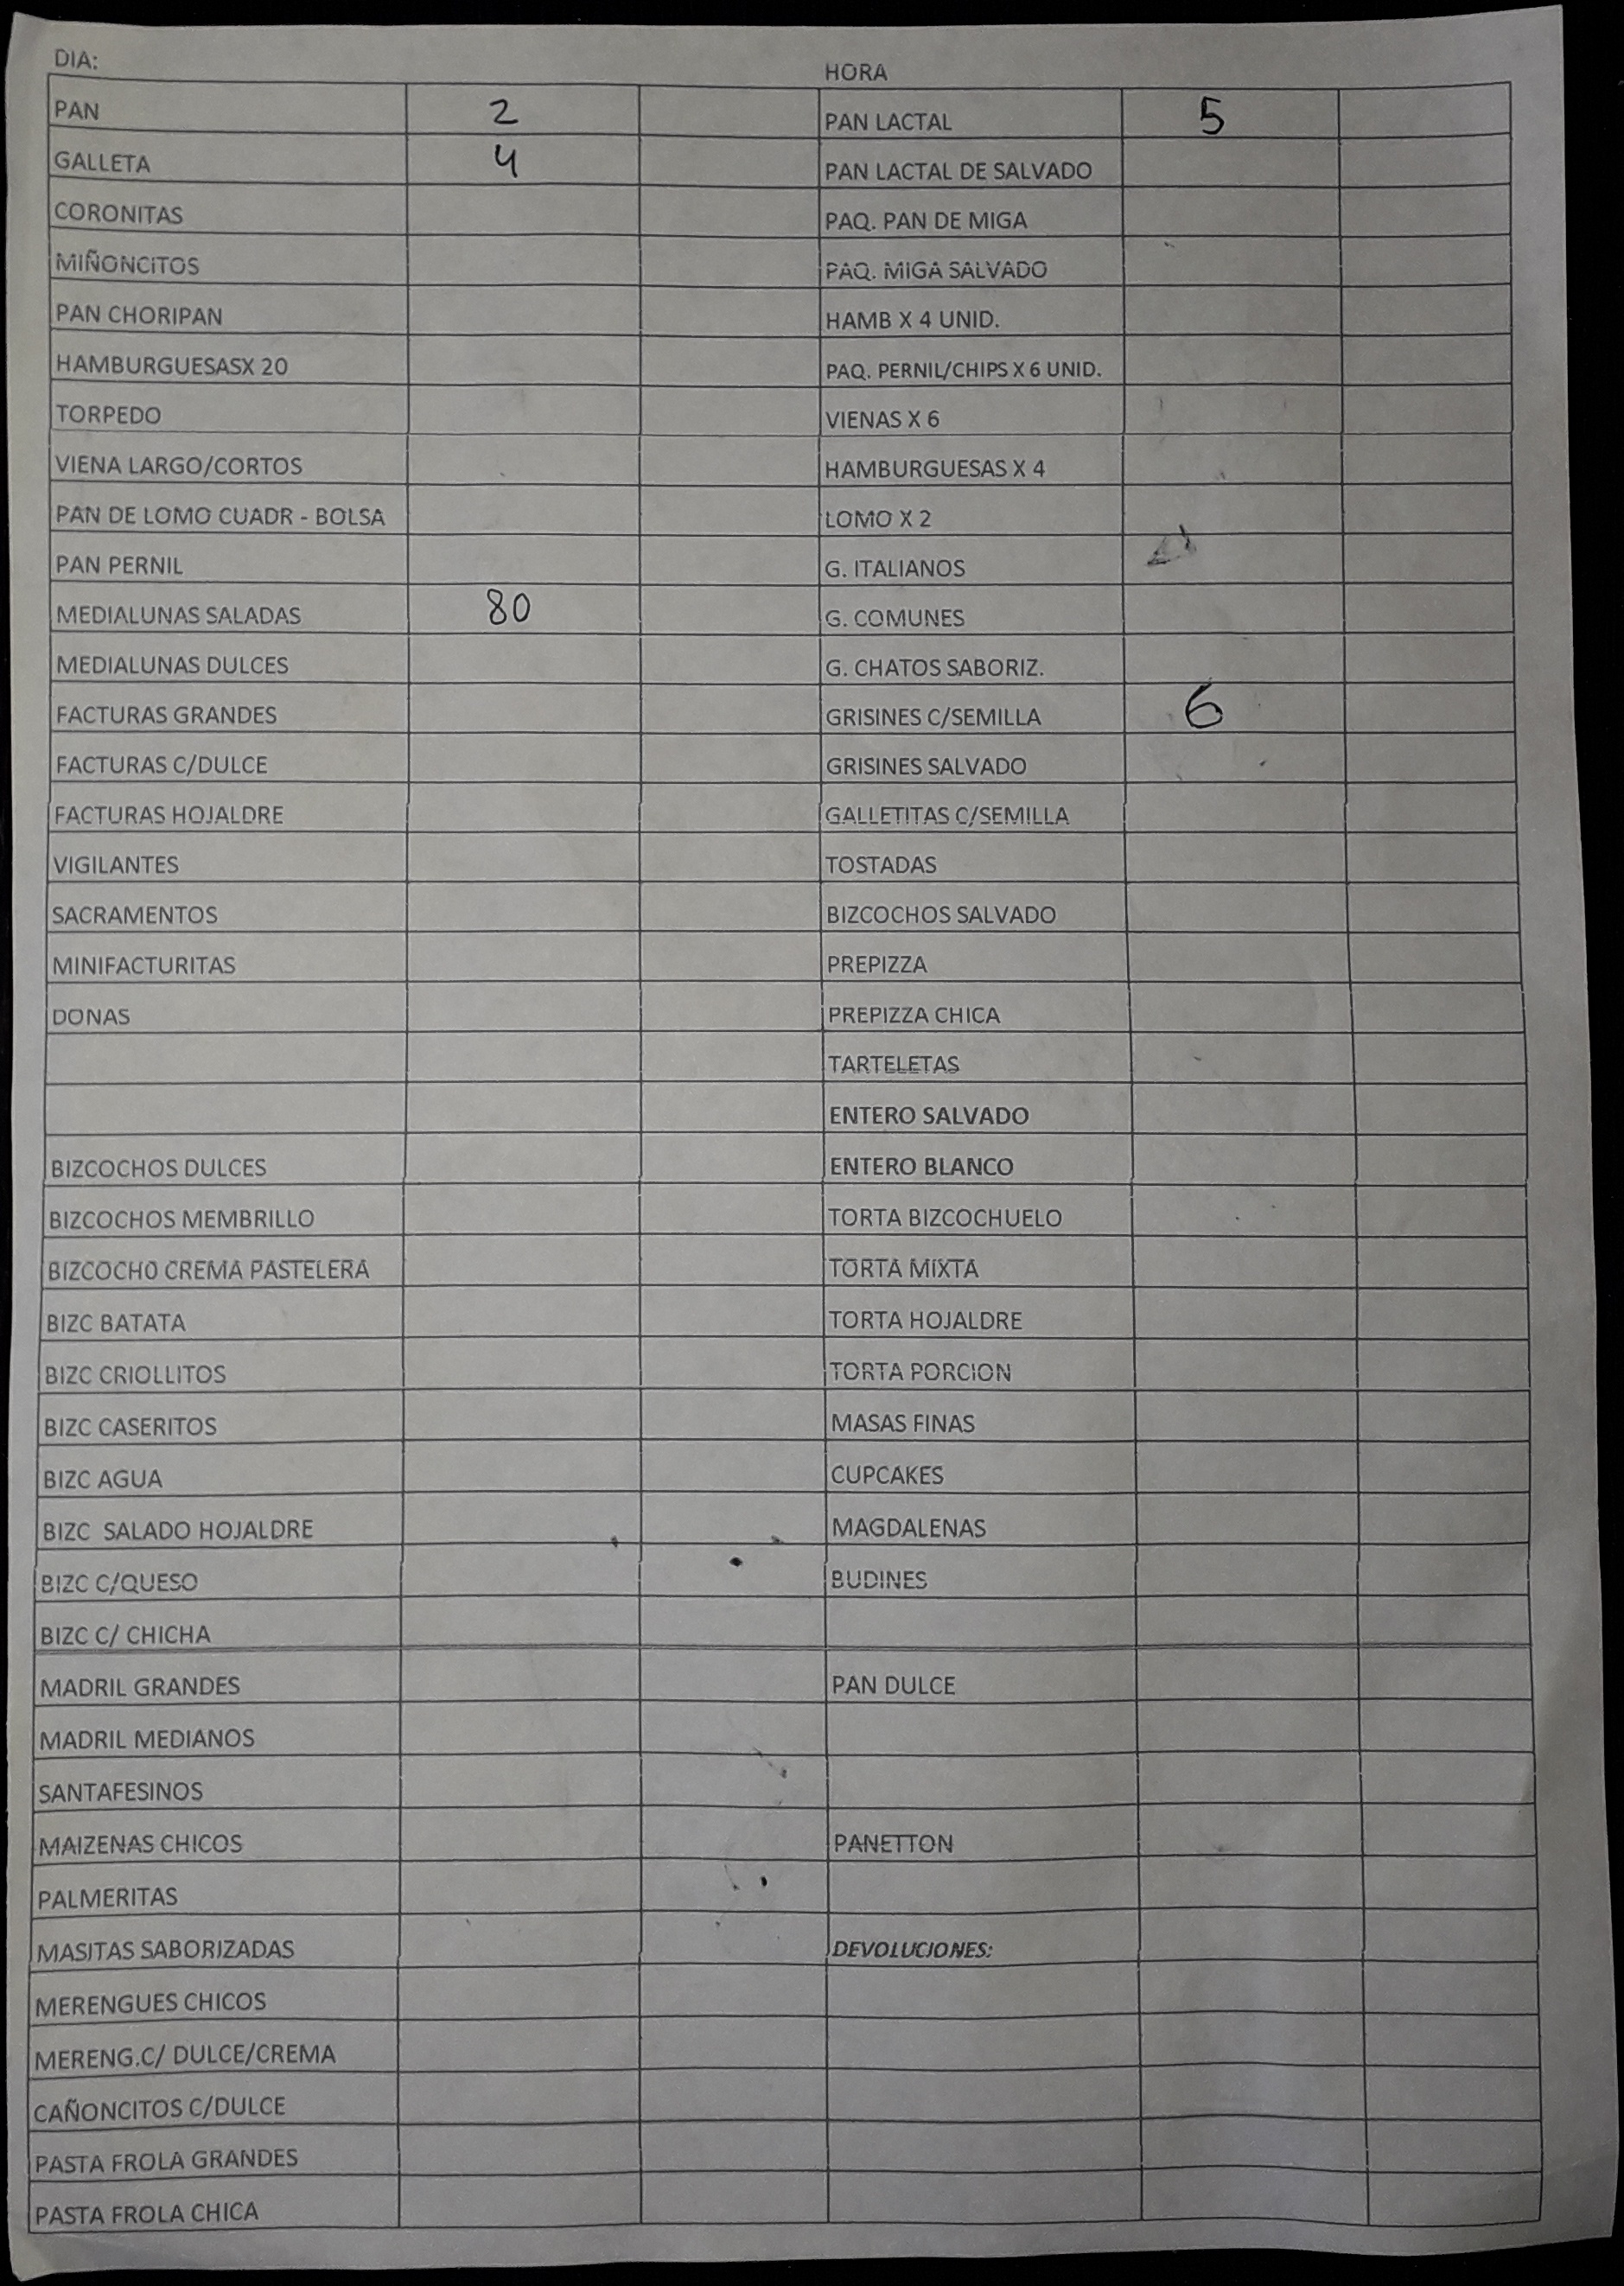 DIA: HORA
PAN 2 PAN LACTAL 5
GALLETA 4 PAN LACTAL DE SALVADO
CORONITAS PAQ. PAN DE MIGA
MIÑONCITOS PAQ. MIGA SALVADO
PAN CHORIPAN HAMB X 4 UNID.
HAMBURGUESASX 20 PAQ. PERNIL/CHIPS X 6 UNID.
TORPEDO VIENAS X 6
VIENA LARGO/CORTOS HAMBURGUESAS X 4
PAN DE LOMO CUADR - BOLSA LOMO X 2
PAN PERNIL G. ITALIANOS
MEDIALUNAS SALADAS 80 G. COMUNES
MEDIALUNAS DULCES G. CHATOS SABORIZ.
FACTURAS GRANDES GRISINES C/SEMILLA 6
FACTURAS C/DULCE GRISINES SALVADO
FACTURAS HOJALDRE GALLETITAS C/SEMILLA
VIGILANTES TOSTADAS
SACRAMENTOS BIZCOCHOS SALVADO
MINIFACTURITAS PREPIZZA
DONAS PREPIZZA CHICA
TARTELETAS
ENTERO SALVADO
BIZCOCHOS DULCES ENTERO BLANCO
BIZCOCHOS MEMBRILLO TORTA BIZCOCHUELO
BIZCOCHO CREMA PASTELERA TORTA MIXTA
BIZC BATATA TORTA HOJALDRE
BIZC CRIOLLITOS TORTA PORCION
BIZC CASERITOS MASAS FINAS
BIZC AGUA CUPCAKES
BIZC SALADO HOJALDRE MAGDALENAS
BIZC C/QUESO BUDINES
BIZC C/ CHICHA
MADRIL GRANDES PAN DULCE
MADRIL MEDIANOS
SANTAFESINOS
MAIZENAS CHICOS PANETTON
PALMERITAS
MASITAS SABORIZADAS DEVOLUCIONES:
MERENGUES CHICOS
MERENG.C/ DULCE/CREMA
CAÑONCITOS C/DULCE
PASTA FROLA GRANDES
PASTA FROLA CHICA